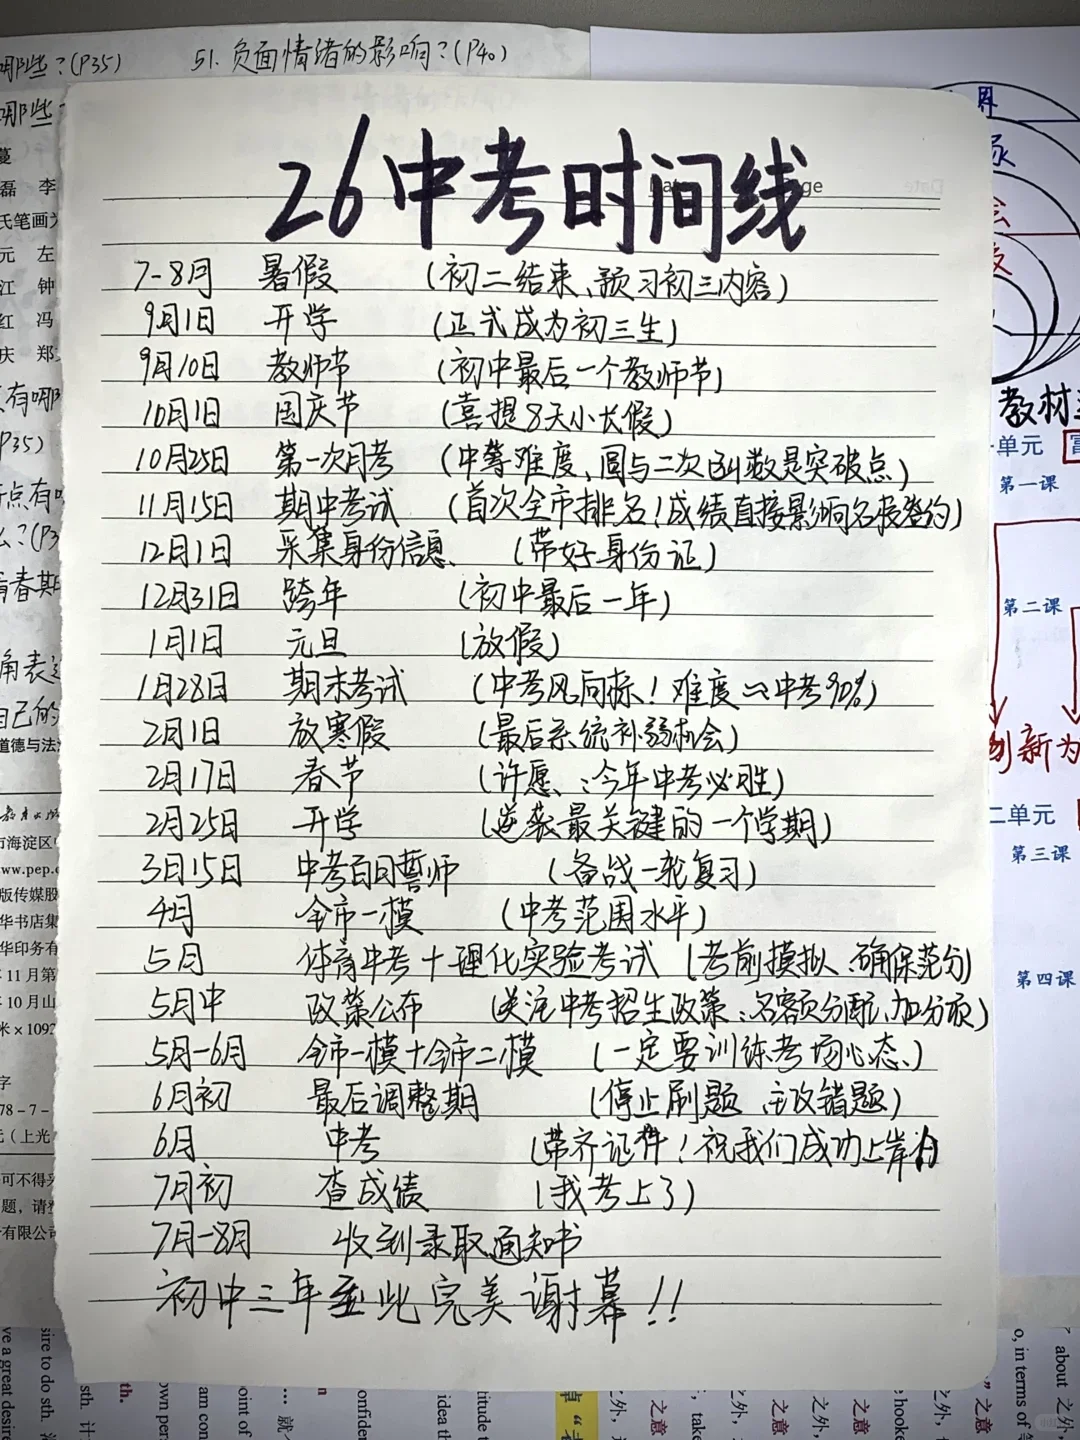 51. 负面情绪的影响？(P40)
哪些？(P35)
哪些
26中考时间线
7-8月 暑假 (初二结束、预习初三内容)
9月1日 开学 (正式成为初三生)
9月10日 教师节 (初中最后一个教师节)
10月1日 国庆节 (喜提8天小长假)
10月25日 第一次月考 (中等难度、圆与二次函数是突破点)
11月15日 期中考试 (首次全市排名！成绩直接影响名校签约)
12月1日 采集身份信息 (带好身份证)
12月31日 跨年 (初中最后一年)
1月1日 元旦 (放假)
1月28日 期末考试 (中考风向标！难度≈中考90%)
2月1日 放寒假 (最后系统补弱机会)
2月17日 春节 (许愿：今年中考必胜)
2月25日 开学 (逆袭最关键的一个学期)
3月15日 中考百日誓师 (备战一轮复习)
4月 全市一模 (中考范围水平)
5月 体育中考+理化实验考试 (考前模拟、确保满分)
5月中 政策公布 (关注中考招生政策：名额分配、加分项)
5月-6月 全市一模+全市二模 (一定要训练考场心态)
6月初 最后调整期 (停止刷题 主攻错题)
6月 中考 (带齐证件！祝我们成功上岸
7月初 查成绩 (我考上了)
7月-8月 收到录取通知书
初中三年至此完美谢幕!!
磊 李
氏笔画为
元 左
江 钟
红 冯
庆 郑
有哪
P35)
点有
青春期
角表达
自己的
道德与法
市海淀区
www.pep.c
版传媒股
华书店集
华印务有
年11月第
年10月山
米×1092
字
78-7-
元(上光
可不得
题，请
有限公司
界
会
教材
单元
第一课
第二课
创新为
二单元
第三课
第四课
sire to do sth.
e a great desire
sth.
th.
own pers
am con
point of
confiden
idea th
titude t
之外
之意
take
hooke
o, in terms of
about